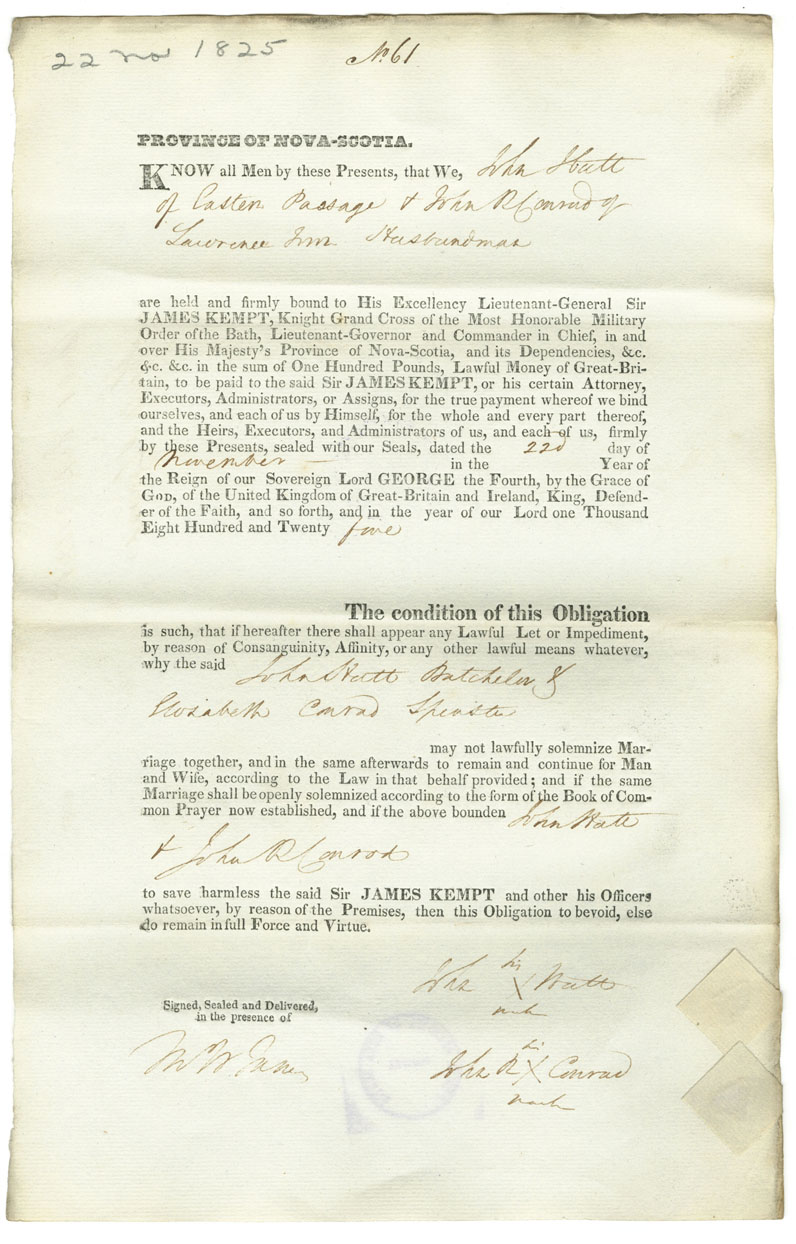 22 no 1825
No 61
PROVINCE OF NOVA-SCOTIA.
KNOW all Men by these Presents, that We, John Hutt
of Eastern Passage & John R Conrad of
Lawrence Husbandman
are held and firmly bound to His Excellency Lieutenant-General Sir
JAMES KEMPT, Knight Grand Cross of the Most Honorable Military
Order of the Bath, Lieutenant-Governor and Commander in Chief, in and
over His Majesty's Province of Nova-Scotia, and its Dependencies, &c.
&c. &c. in the sum of One Hundred Pounds, Lawful Money of Great-Bri-
tain, to be paid to the said Sir JAMES KEMPT, or his certain Attorney,
Executors, Administrators, or Assigns, for the true payment whereof we bind
ourselves, and each of us by Himself, for the whole and every part thereof,
and the Heirs, Executors, and Administrators of us, and each of us, firmly
by these Presents, sealed with our Seals, dated the 22d day of
November — in the Year of
the Reign of our Sovereign Lord GEORGE the Fourth, by the Grace of
GOD, of the United Kingdom of Great-Britain and Ireland, King, Defend-
er of the Faith, and so forth, and in the year of our Lord one Thousand
Eight Hundred and Twenty five
The condition of this Obligation
is such, that if hereafter there shall appear any Lawful Let or Impediment,
by reason of Consanguinity, Affinity, or any other lawful means whatever,
why the said John Hutt Batchelor &
Elizabeth Conrad Spinster
may not lawfully solemnize Mar-
riage together, and in the same afterwards to remain and continue for Man
and Wife, according to the Law in that behalf provided; and if the same
Marriage shall be openly solemnized according to the form of the Book of Com-
mon Prayer now established, and if the above bounden John Hutt
& John R Conrod
to save harmless the said Sir JAMES KEMPT and other his Officers
whatsoever, by reason of the Premises, then this Obligation to be void, else
do remain in full Force and Virtue.
his
John X Hutt
mark
Signed, Sealed and Delivered,
in the presence of
his
John R X Conrad
mark